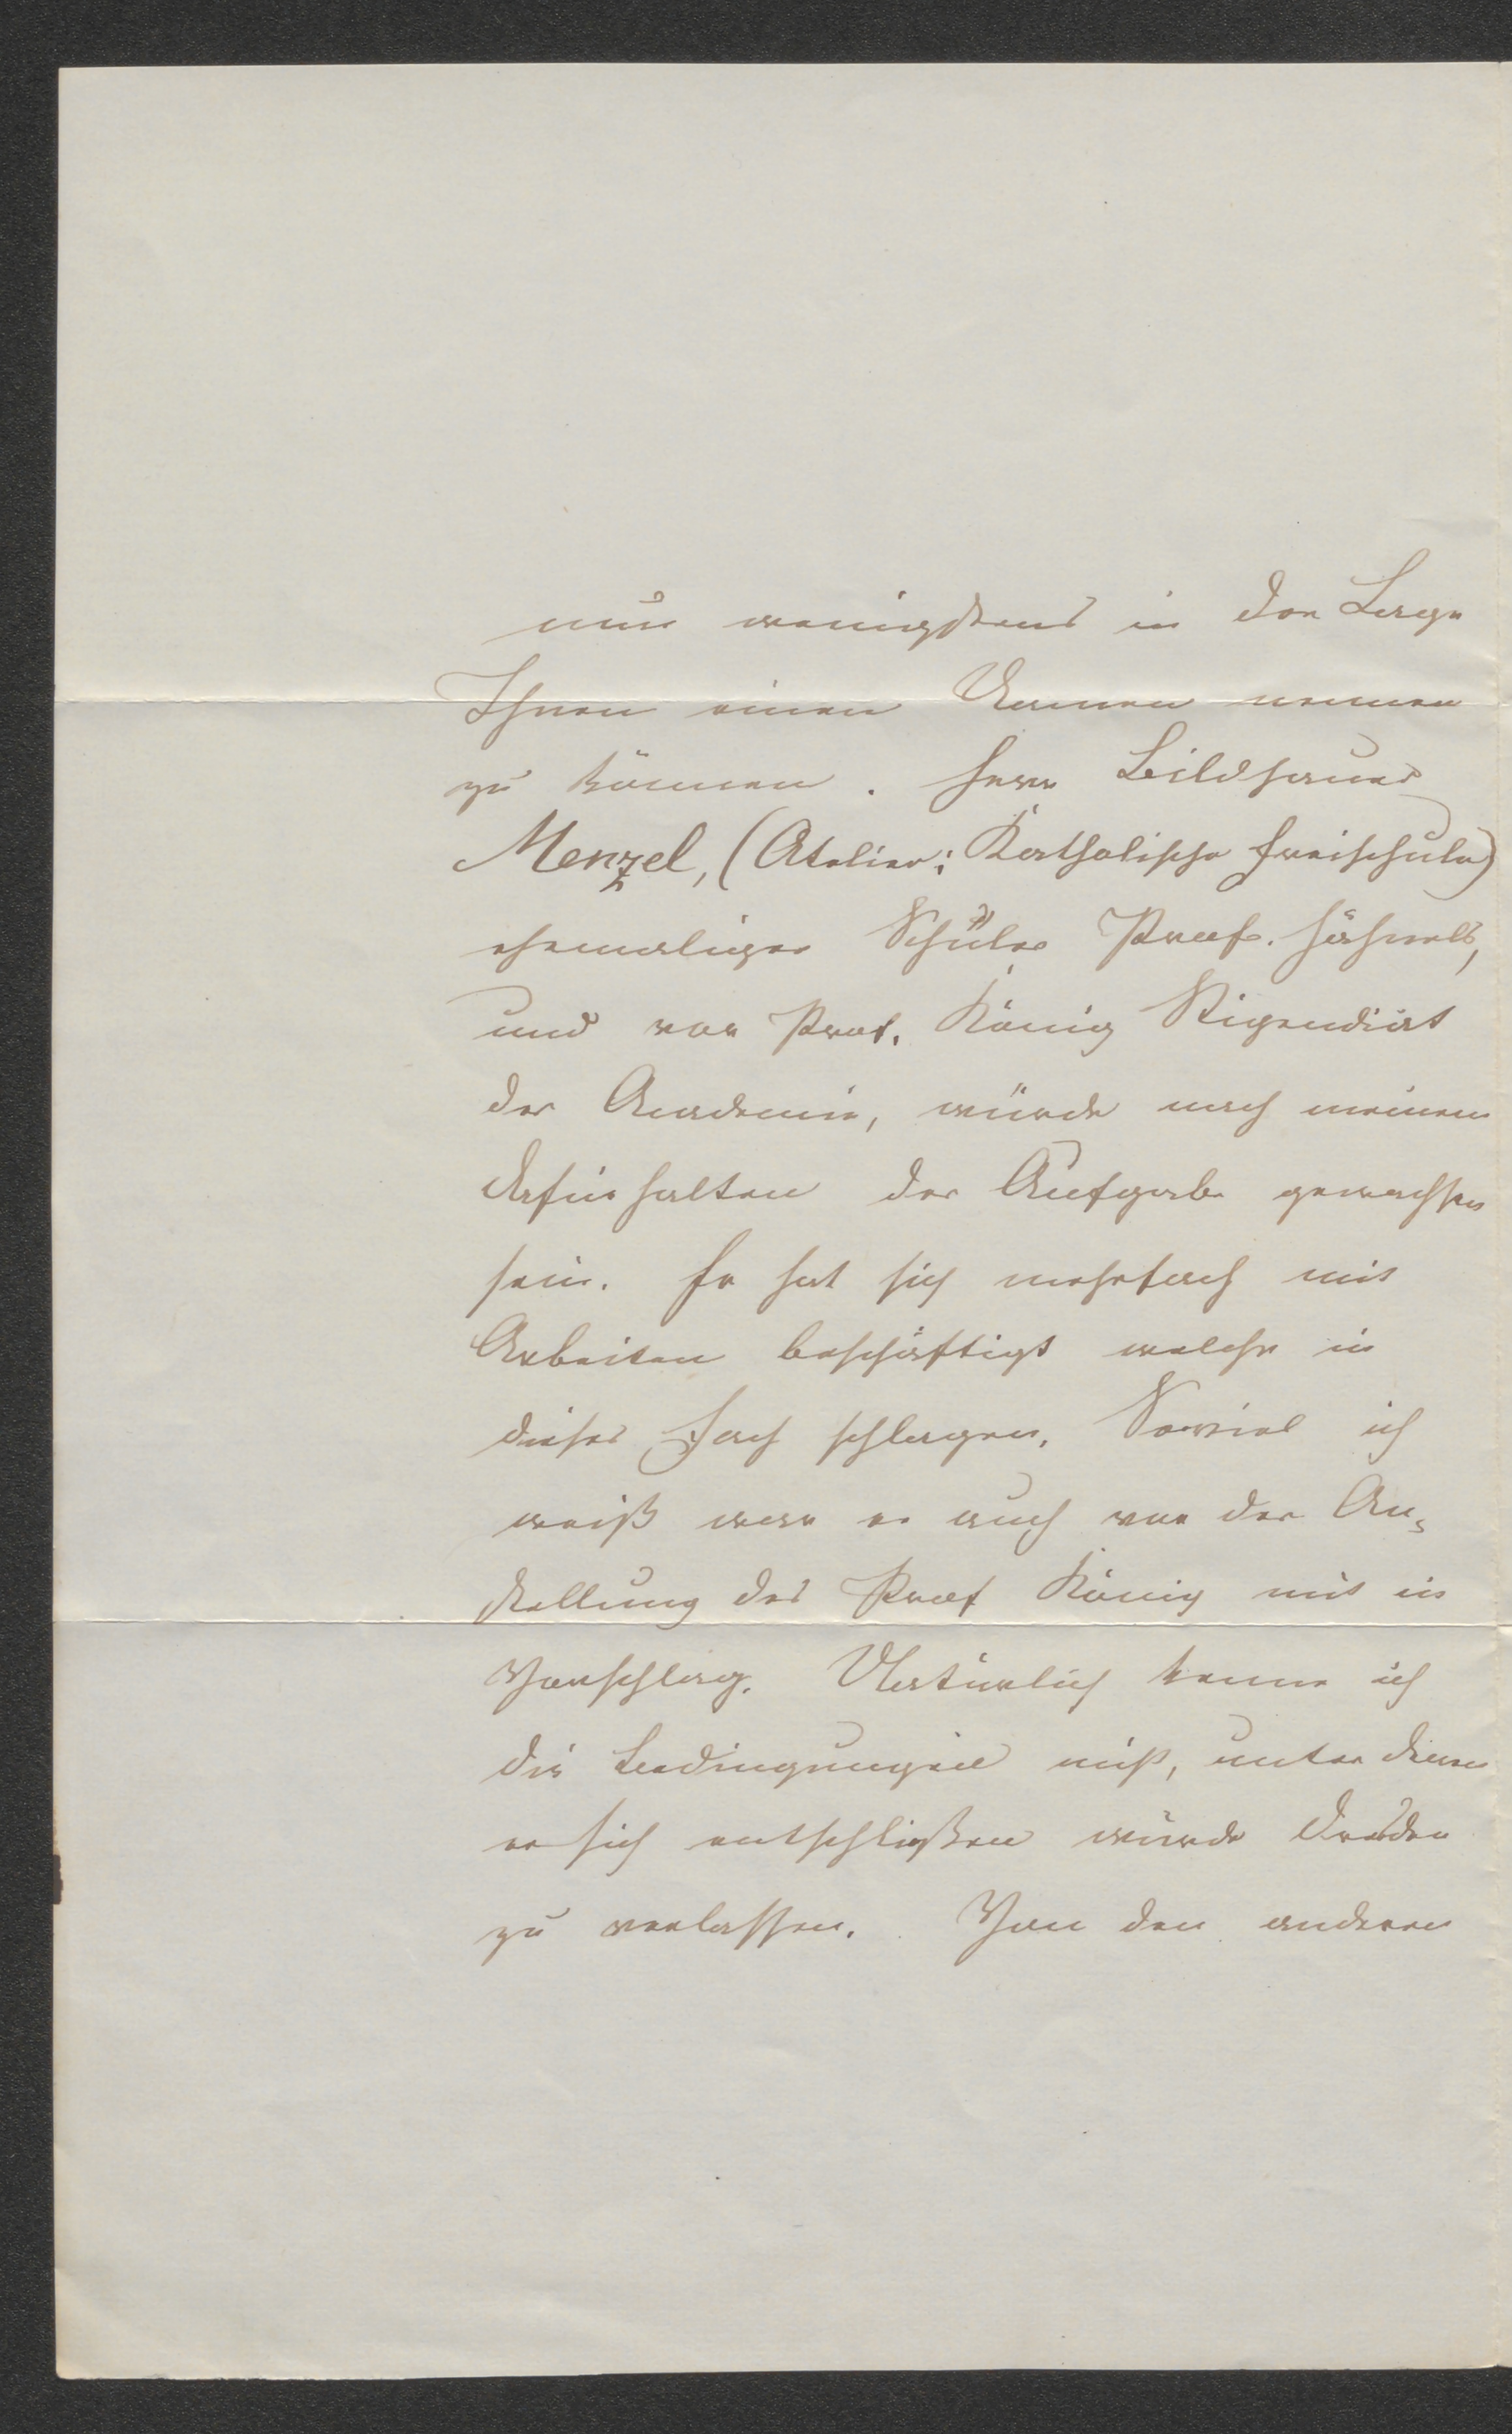 nun wenigstens in der Lage
Ihnen einen Namen nennen
zu können. Herr Bildhauer
Menzel, (Atelier: Katholische Freischule)
ehemaliger Schüler Prof. Hähnels,
und vor Prof. König Stipendiat
der Academie, würde nach meinem
Dafürhalten der Aufgabe gewachsen
sein. Er hat sich mehrfach mit
Arbeiten beschäftigt welche in
dieses Fach schlagen. Soviel ich
weiß war er auch vor der An-
stellung des Prof König mit in
Vorschlag. Natürlich kenne ich
die Bedingungen nicht, unter denen
er sich entschließen würde Dresden
zu verlassen. Von den anderen